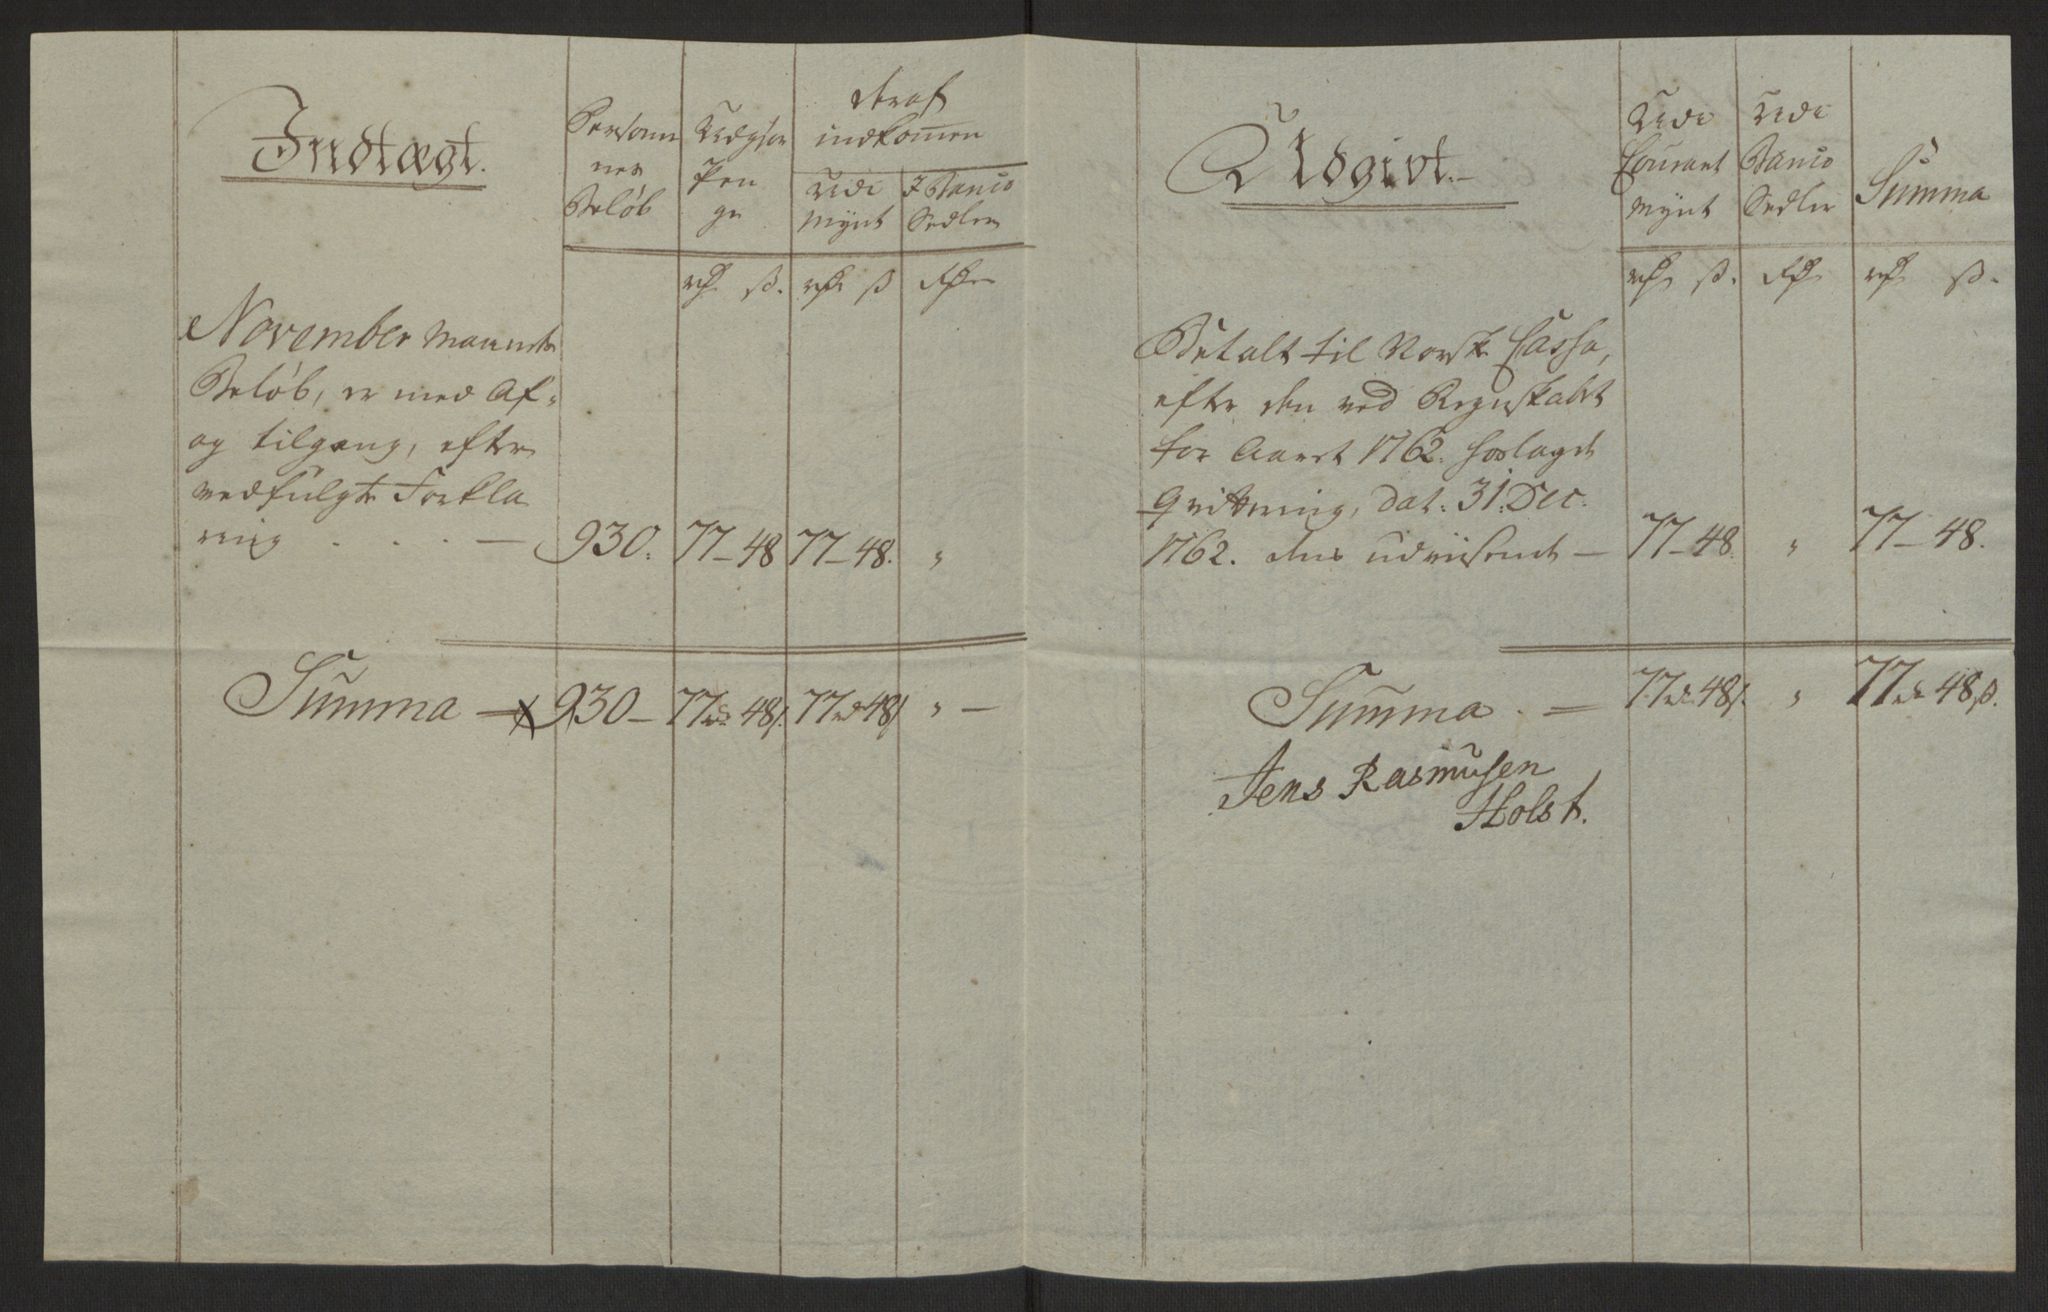 Indtægt.
Personer
nes
Beløb
Udgjør
Pen
ge
deraf
indkommen
Udi
Mynt
I Banco
Sedler
rdr ß. rdr ß rdr
November Maaneds
Beløb, er med Af-
og tilgang, efter
vedfulgte Forkla
ring . . . — 930. 77 - 48 77 - 48. "
Summa — 930 — 77 rd 48 ß. 77 rd 48 ß " —
Udgivt.
Udi
Courant
Mynt
Udi
Banco
Sedler
Summa
rdr ß. rdr rdr ß.
Betalt til Norske Cassa,
efter den ved Regnskabet
for Aaret 1762. hoslagde
Qvittering, dat. 31. Dec.
1762. dens udviisende — 77 - 48. " 77 - 48.
Summa . — 77 rd 48 ß. " 77 rd 48 ß.
Jens Rasmusen
Holst.